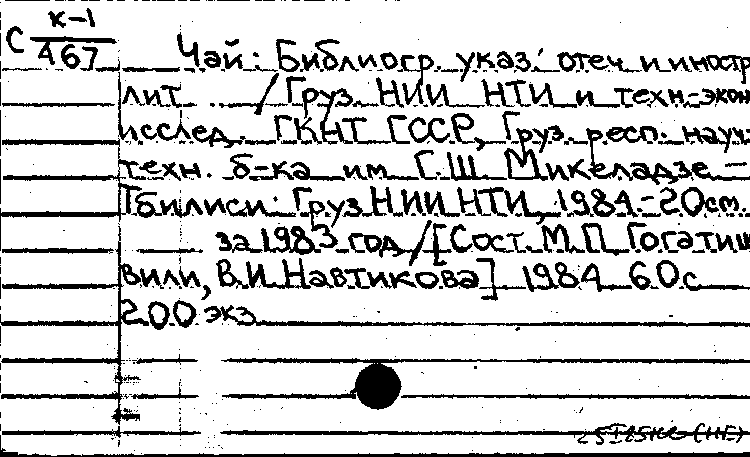 С к-1
467
Чай: Библиогр. указ. отеч и иностр
лит ... / Груз. НИИ НТИ и техн.-экон
исслед. ГКНТ ГССР, Груз. респ. науч.-
техн. б-ка им Г.Ш. Микеладзе –
Тбилиси: Груз НИИ НТИ, 1984.-20см.
за 1983 год / [Сост. М.П. Гогатиш
вили, В.И. Навтикова] 1984 60с
200 экз